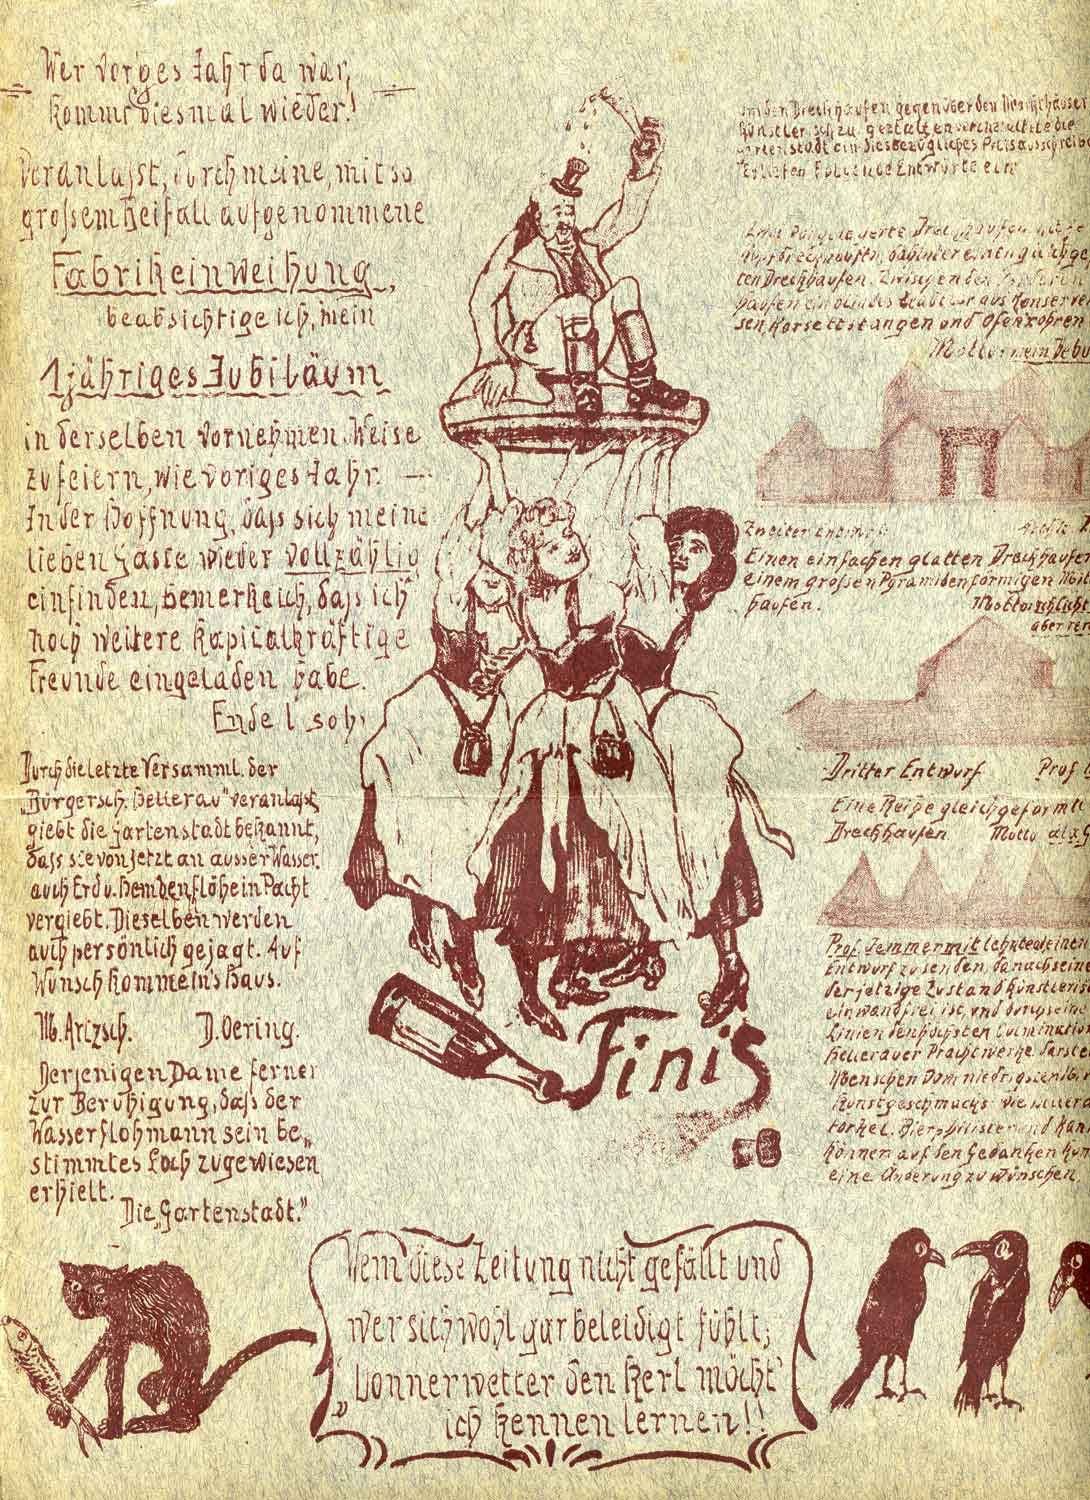 Wer vor'ges Jahr da war,
kommt diesmal wieder!
Veranlaßt, durch meine, mit so
großem Beifall aufgenommene
Fabrikeinweihung,
beabsichtige ich, mein
1jähriges Jubiläum
in derselben vornehmen Weise
zu feiern, wie voriges Jahr. —
In der Hoffnung, daß sich meine
lieben Gäste wieder vollzählig
einfinden, bemerke ich, daß ich
noch weitere kapitalkräftige
Freunde eingeladen habe.
Endel
Durch die letzte Versamml. der
„Bürgersch. Hellerau" veranlaßt
giebt die Gartenstadt bekannt,
dass sie von jetzt an ausser Wasser
auch Erd u. Hemdenflöhe in Pacht
vergiebt. Dieselben werden
auch persönlich gejagt. Auf
Wunsch komme in's Haus.
M. Artzsch. D. Oering.
Derjenigen Dame ferner
zur Beruhigung, daß der
Wasserflohmann sein be„
stimmtes Loch zugewiesen
erhielt.
Die „Gartenstadt."
Finis
Um den Dreckhaufen gegenüber den
künstlerisch zu gestalten veranstaltete die
Gartenstadt ein diesbezügliches Preisausschreibe
Es liefen folgende Entwürfe ein
Dreckhaufen
dahinter
ten Dreckhaufen. Zwischen den
haufen ein aus Konserve
sen Korsettstangen und Ofenrohren
Motto: mein
Zweiter Entwurf:
Einen einfachen glatten Dreckhaufen
einem großen Pyramidenförmigen
haufen. Motto: schlicht
aber
Dritter Entwurf Prof
Eine Reihe gleichgeformte
Dreckhaufen Motto
Prof. Temmermit lehnte es einen
Entwurf zu senden, da nach seine
der jetzige Zustand künstlerisch
einwandfrei ist, und
Linien den höchsten
Hellerauer Prachtwerke darstel
Menschen
Kunstgeschmacks wie
Bierphilister und
können auf den Gedanken kom
eine Änderung zu wünschen.
Wem diese Zeitung nicht gefällt und
wer sich wohl gar beleidigt fühlt,
„Donnerwetter den Kerl möcht'
ich kennen lernen!!